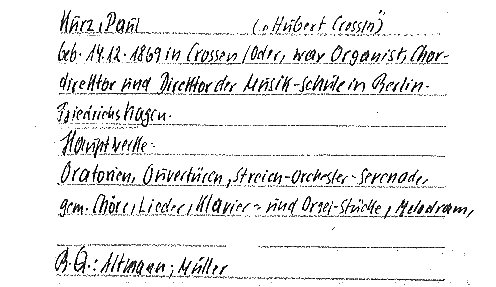 Kurz, Paul („Hubert Crossen")
geb. 14.12.1869 in Crossen/Oder, war Organist, Chor-
direktor und Direktor der Musik-schule in Berlin-
Friedrichshagen.
Hauptwerke:
Oratorien, Ouvertüren, Streich-Orchester-Serenade,
gem. Chöre, Lieder, Klavier- und Orgel-Stücke, Melodram,
B.Q.: Altmann; Müller